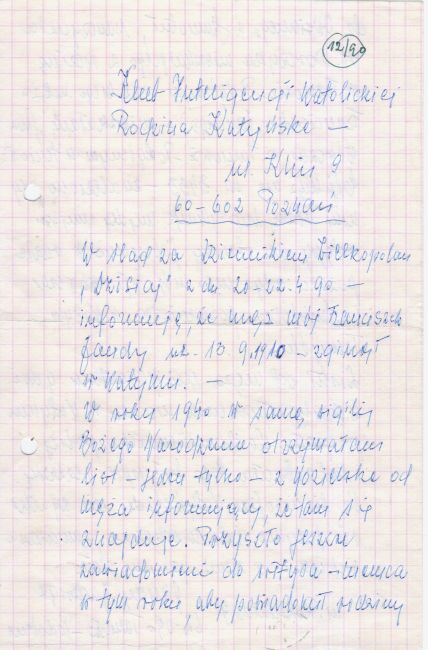 12/90
Klub Inteligencji Katolickiej
Rodzina Katyńska —
ul. Klin 9
60-602 Poznań
W ślad za Dziennikiem Wielkopolan
"Dzisiaj" z dn 20-22.4.90 —
informuję, że mąż mój Franciszek
ur. 13 9.1910 – zginął
w Katyniu. —
W roku 1940 w samą wigilię
Bożego Narodzenia otrzymałam
list – jeden tylko – z Kozielska od
męża informujący, że tam się
znajduje. Przyszło jeszcze
zawiadomienie do sołtysa – niemca
w tym roku, aby powiadomił rodzinę